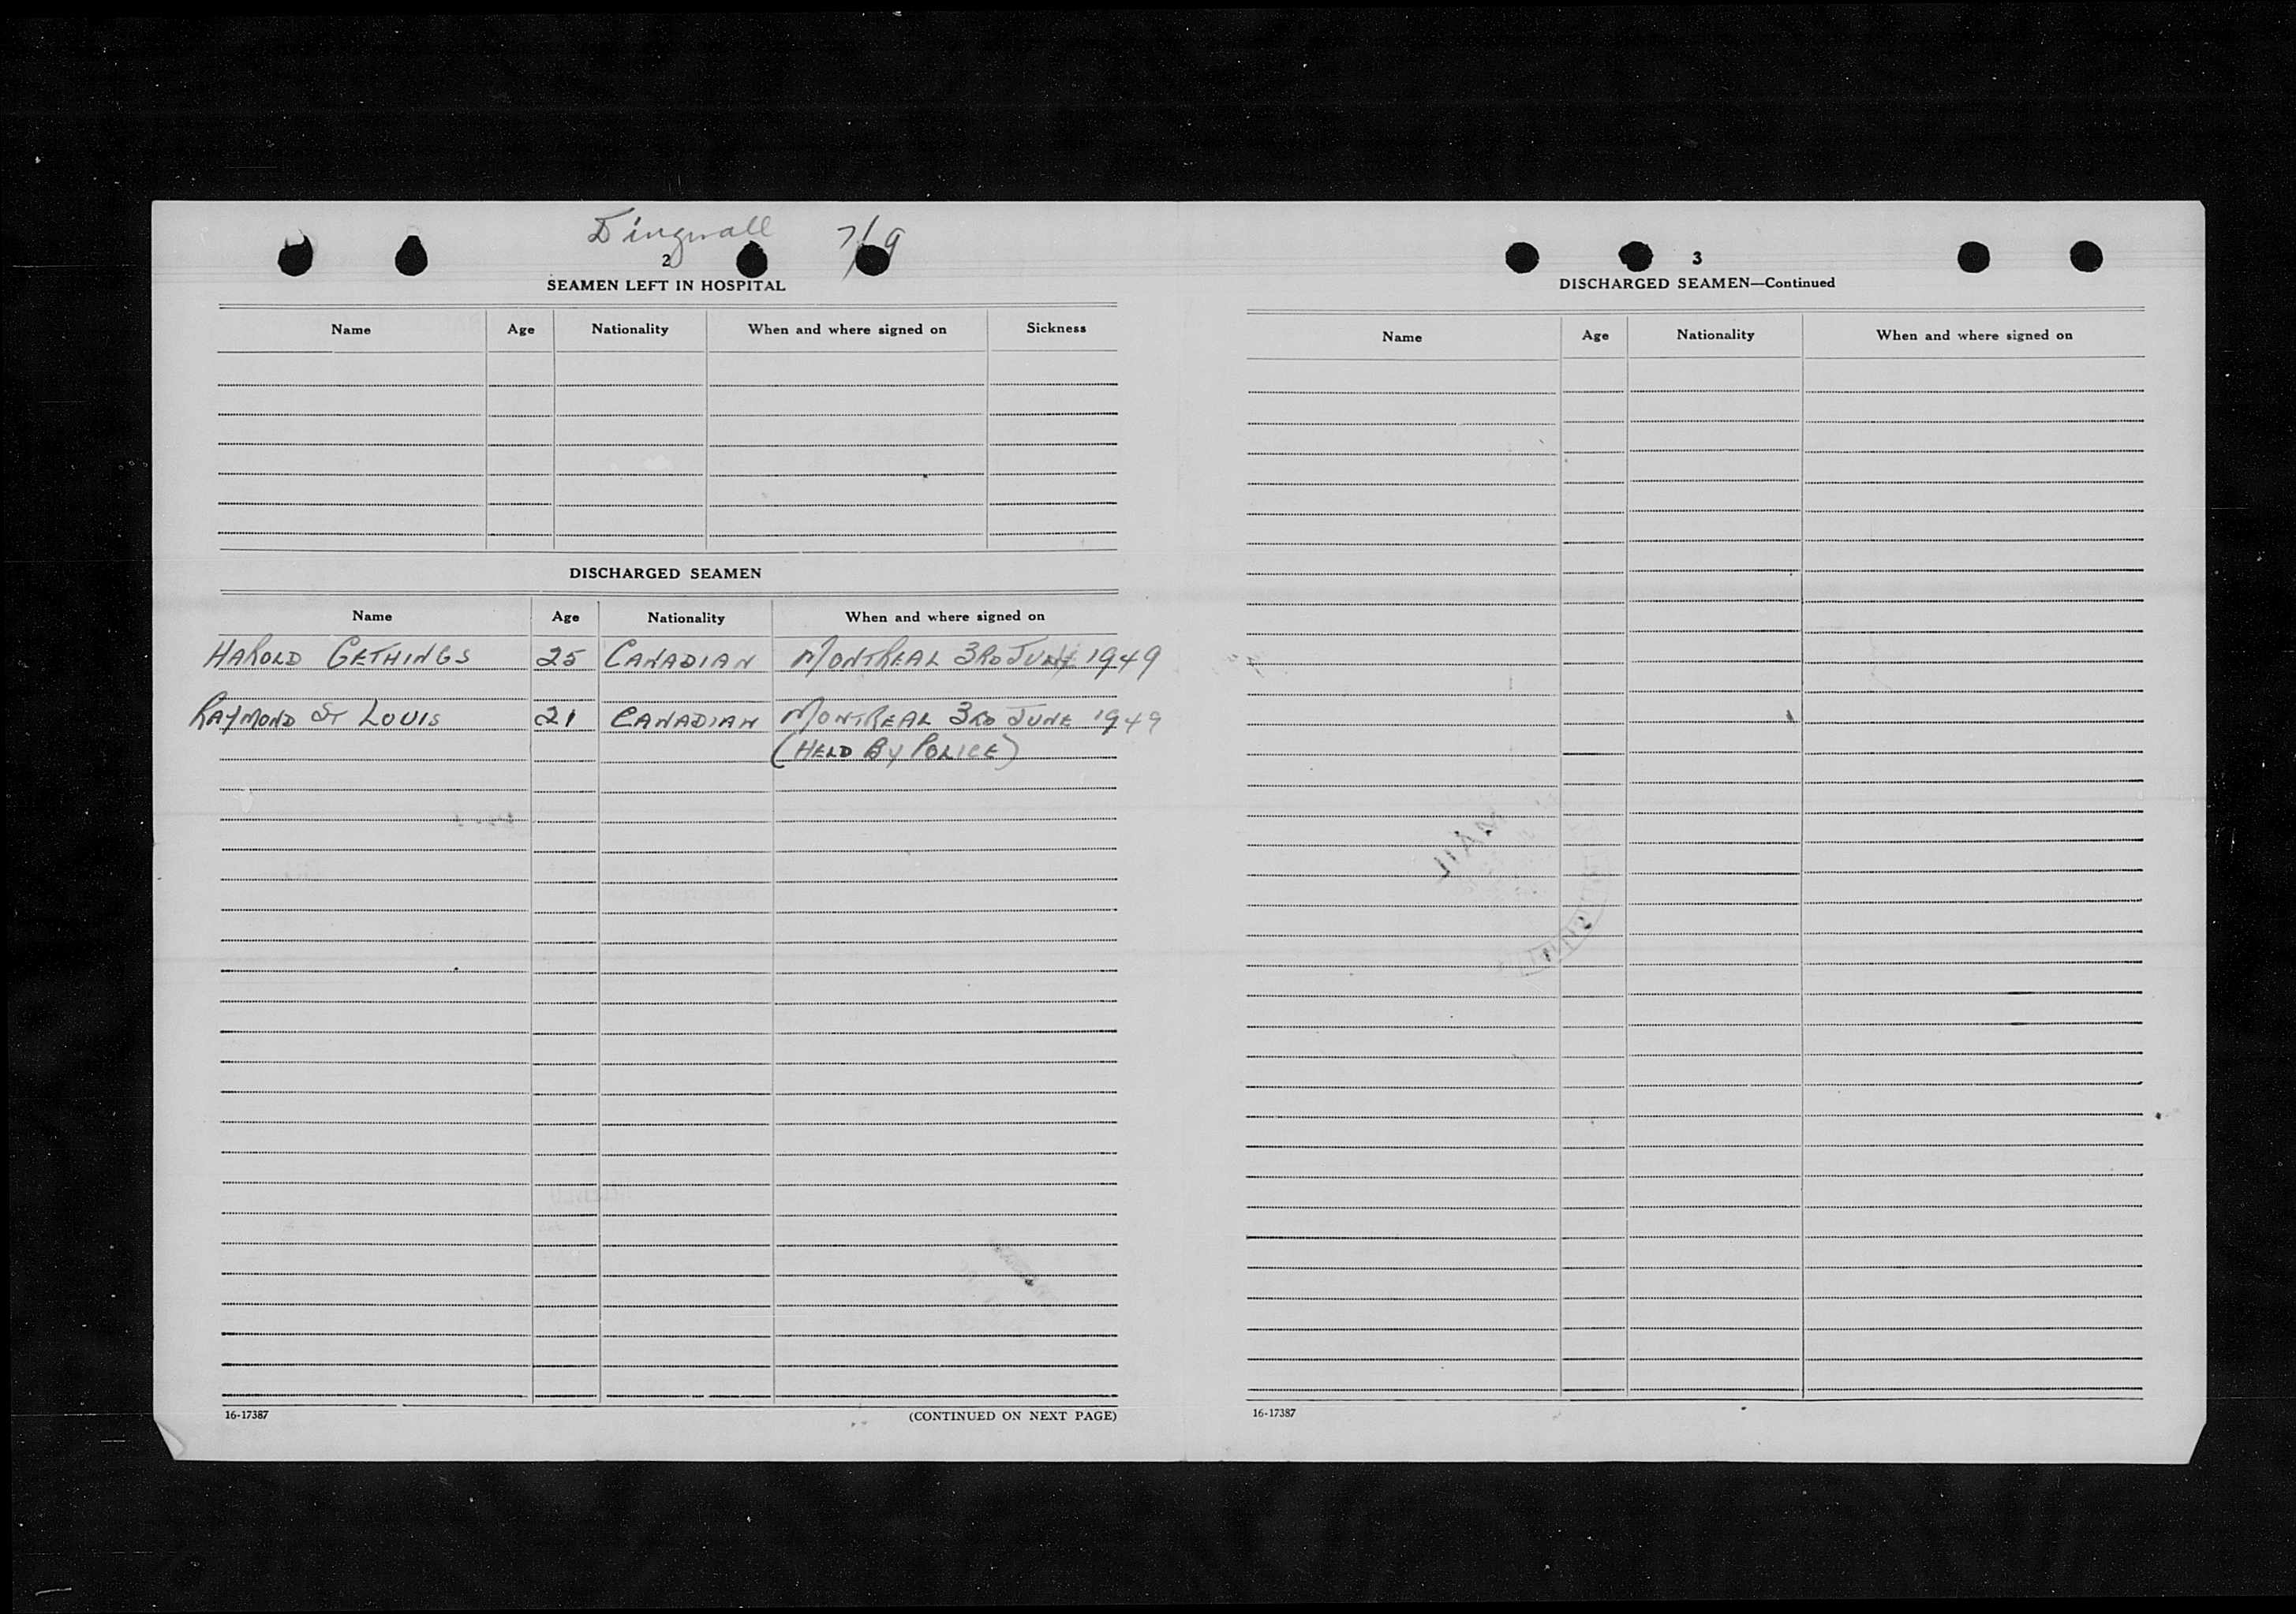 Dingwall 7/9
2
SEAMEN LEFT IN HOSPITAL
Name Age Nationality When and where signed on Sickness
DISCHARGED SEAMEN
Name Age Nationality When and where signed on
HAROLD GETHINGS 25 CANADIAN MONTREAL 3RD JUNE 1949
RAYMOND ST LOUIS 21 CANADIAN MONTREAL 3RD JUNE 1949
(HELD BY POLICE)
16-17387 (CONTINUED ON NEXT PAGE)
3
DISCHARGED SEAMEN—Continued
Name Age Nationality When and where signed on
MAIL
16-17387